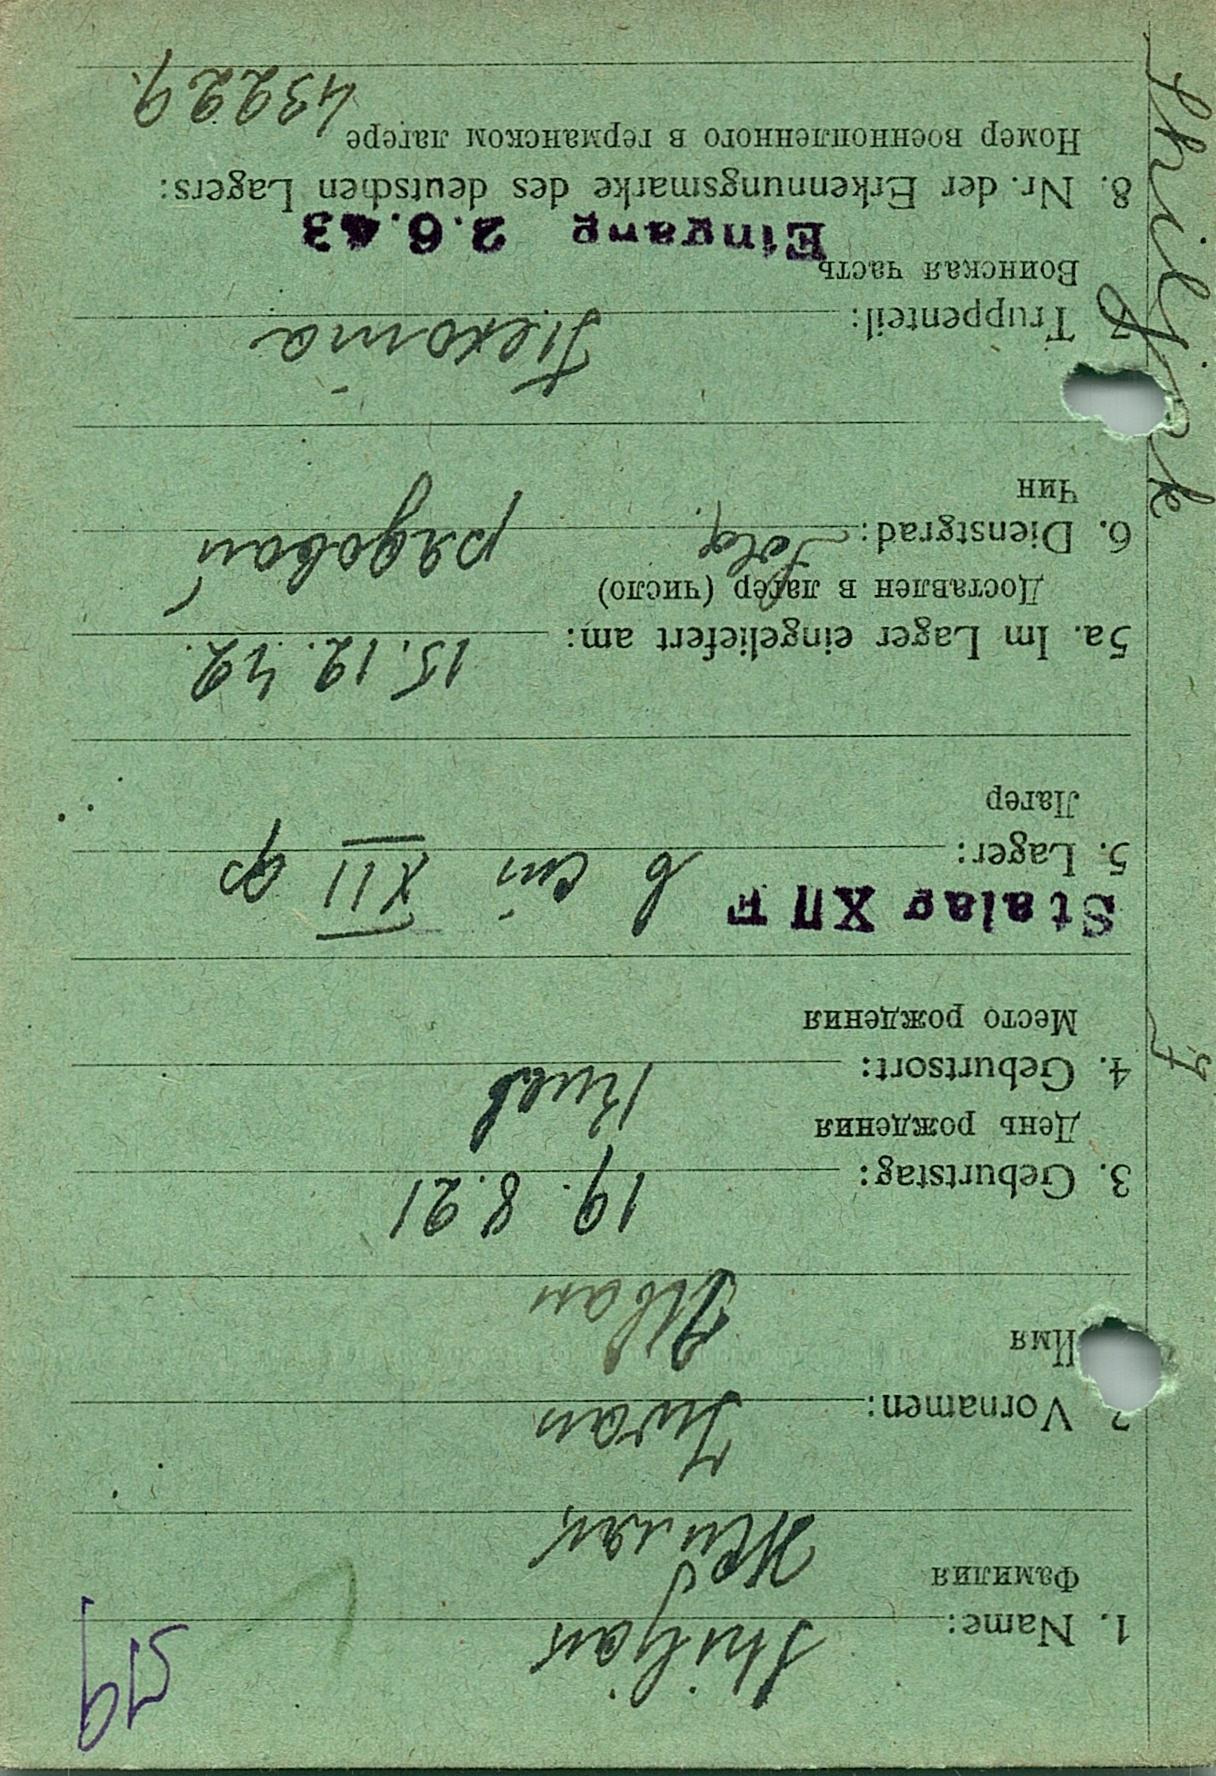 59
1. Name: Shiljak
Фамилия Жиляк
2. Vornamen: Iwan
Имя Иван
3. Geburtstag: 19. 8. 21
День рождения
4. Geburtsort: Киев
Место рождения
Stalag XII F
5. Lager: в XII ф
Лагер
5a. Im Lager eingeliefert am: 15. 12. 42.
Доставлен в лагер (число)
6. Dienstgrad: Sold. рядовой
Чин
7. Truppenteil: Пехота
Воинская часть
Eingang 2.6.43
8. Nr. der Erkennungsmarke des deutschen Lagers:
Номер военнопленного в германском лагере 43229.
Shiljak